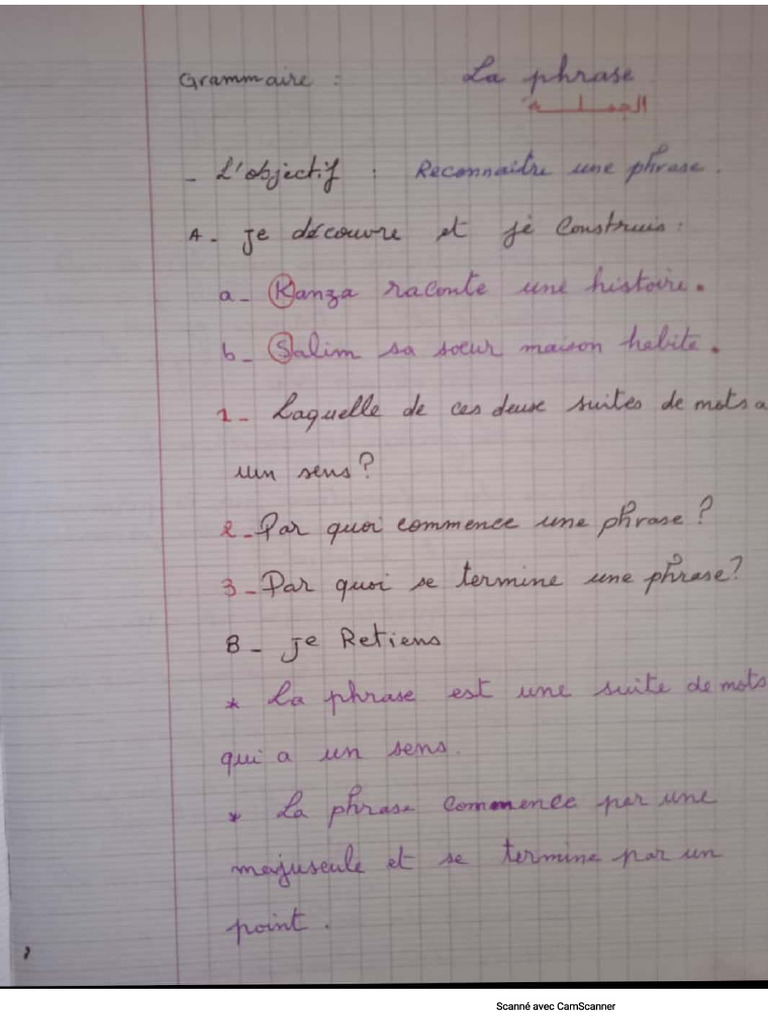 Grammaire : La phrase
الجملة
- L'objectif : Reconnaitre une phrase.
A- je découvre et je Construis :
a- Kanza raconte une histoire.
b- Salim sa soeur maison habite.
1- Laquelle de ces deux suites de mots a
un sens ?
2- Par quoi commence une phrase ?
3- Par quoi se termine une phrase ?
B- je Retiens
* La phrase est une suite de mots
qui a un sens.
* La phrase Commence par une
majuscule et se termine par un
point.
Scanné avec CamScanner